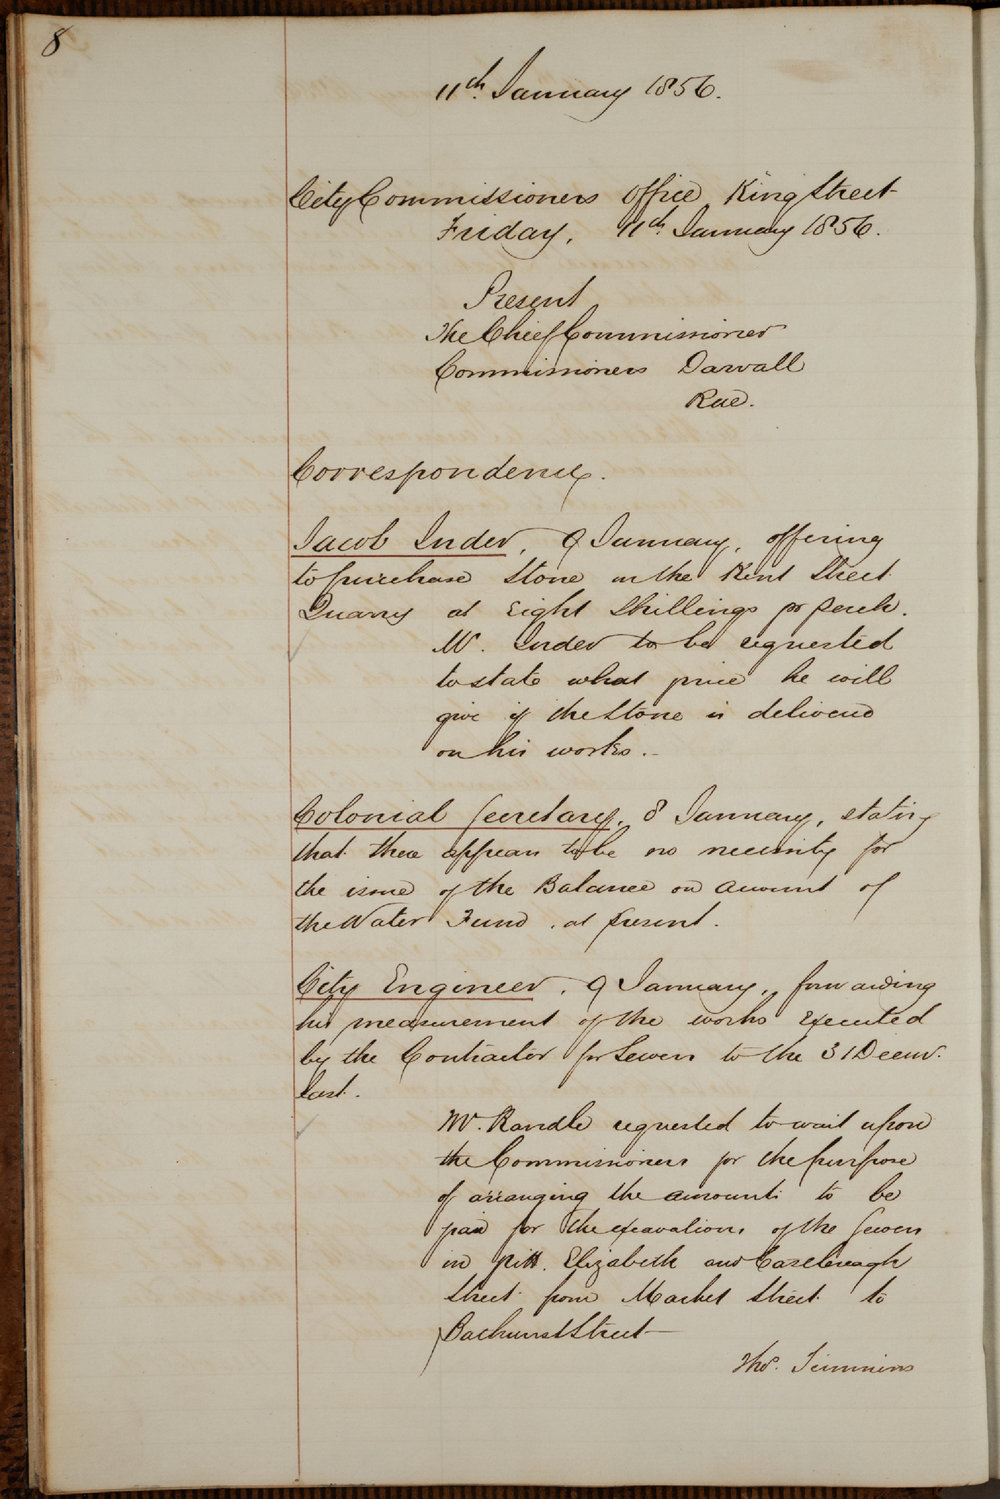 8
11th. January 1856.
City Commissioners Office King Street
Friday, 11th January 1856.
Present
The Chief Commissioner
Commissioners Darvall
Rae.
Correspondence.
Jacob Inder, 9 January, offering
to purchase Stone in the Kent Street
Quarry at Eight Shillings pr perch.
Mr. Inder to be requested
to state what price he will
give if the Stone is delivered
on his works.-
Colonial Secretary, 8 January, stating
that there appears to be no necessity for
the issue of the Balance on account of
the Water Fund, at present.
City Engineer, 9 January, forwarding
his measurement of the works Executed
by the Contractor for Sewers to the 31 Decmr.
last.
Mr. Randle requested to wait upon
the Commissioners for the purpose
of arranging the amounts to be
paid for the excavations of the Sewers
in Pitt, Elizabeth and Castlereagh
Street from Market Street to
Bathurst Street
Thos. Timmins